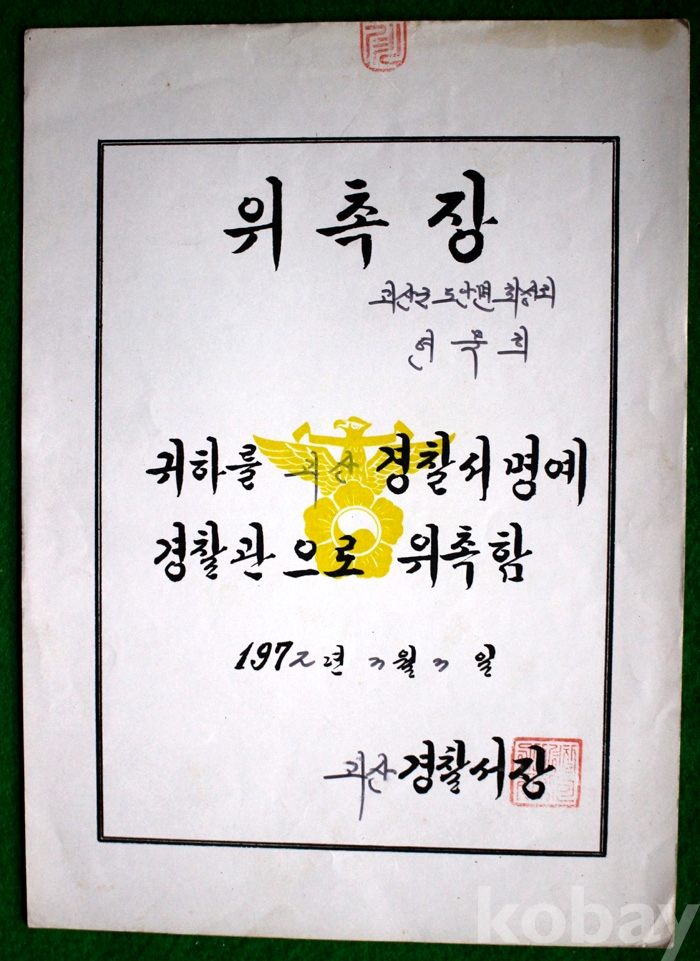 위촉장
괴산군 도안면 화성리
연묵희
귀하를 괴산 경찰서명예
경찰관으로 위촉함
1972년 3월 3일
괴산 경찰서장
kobay